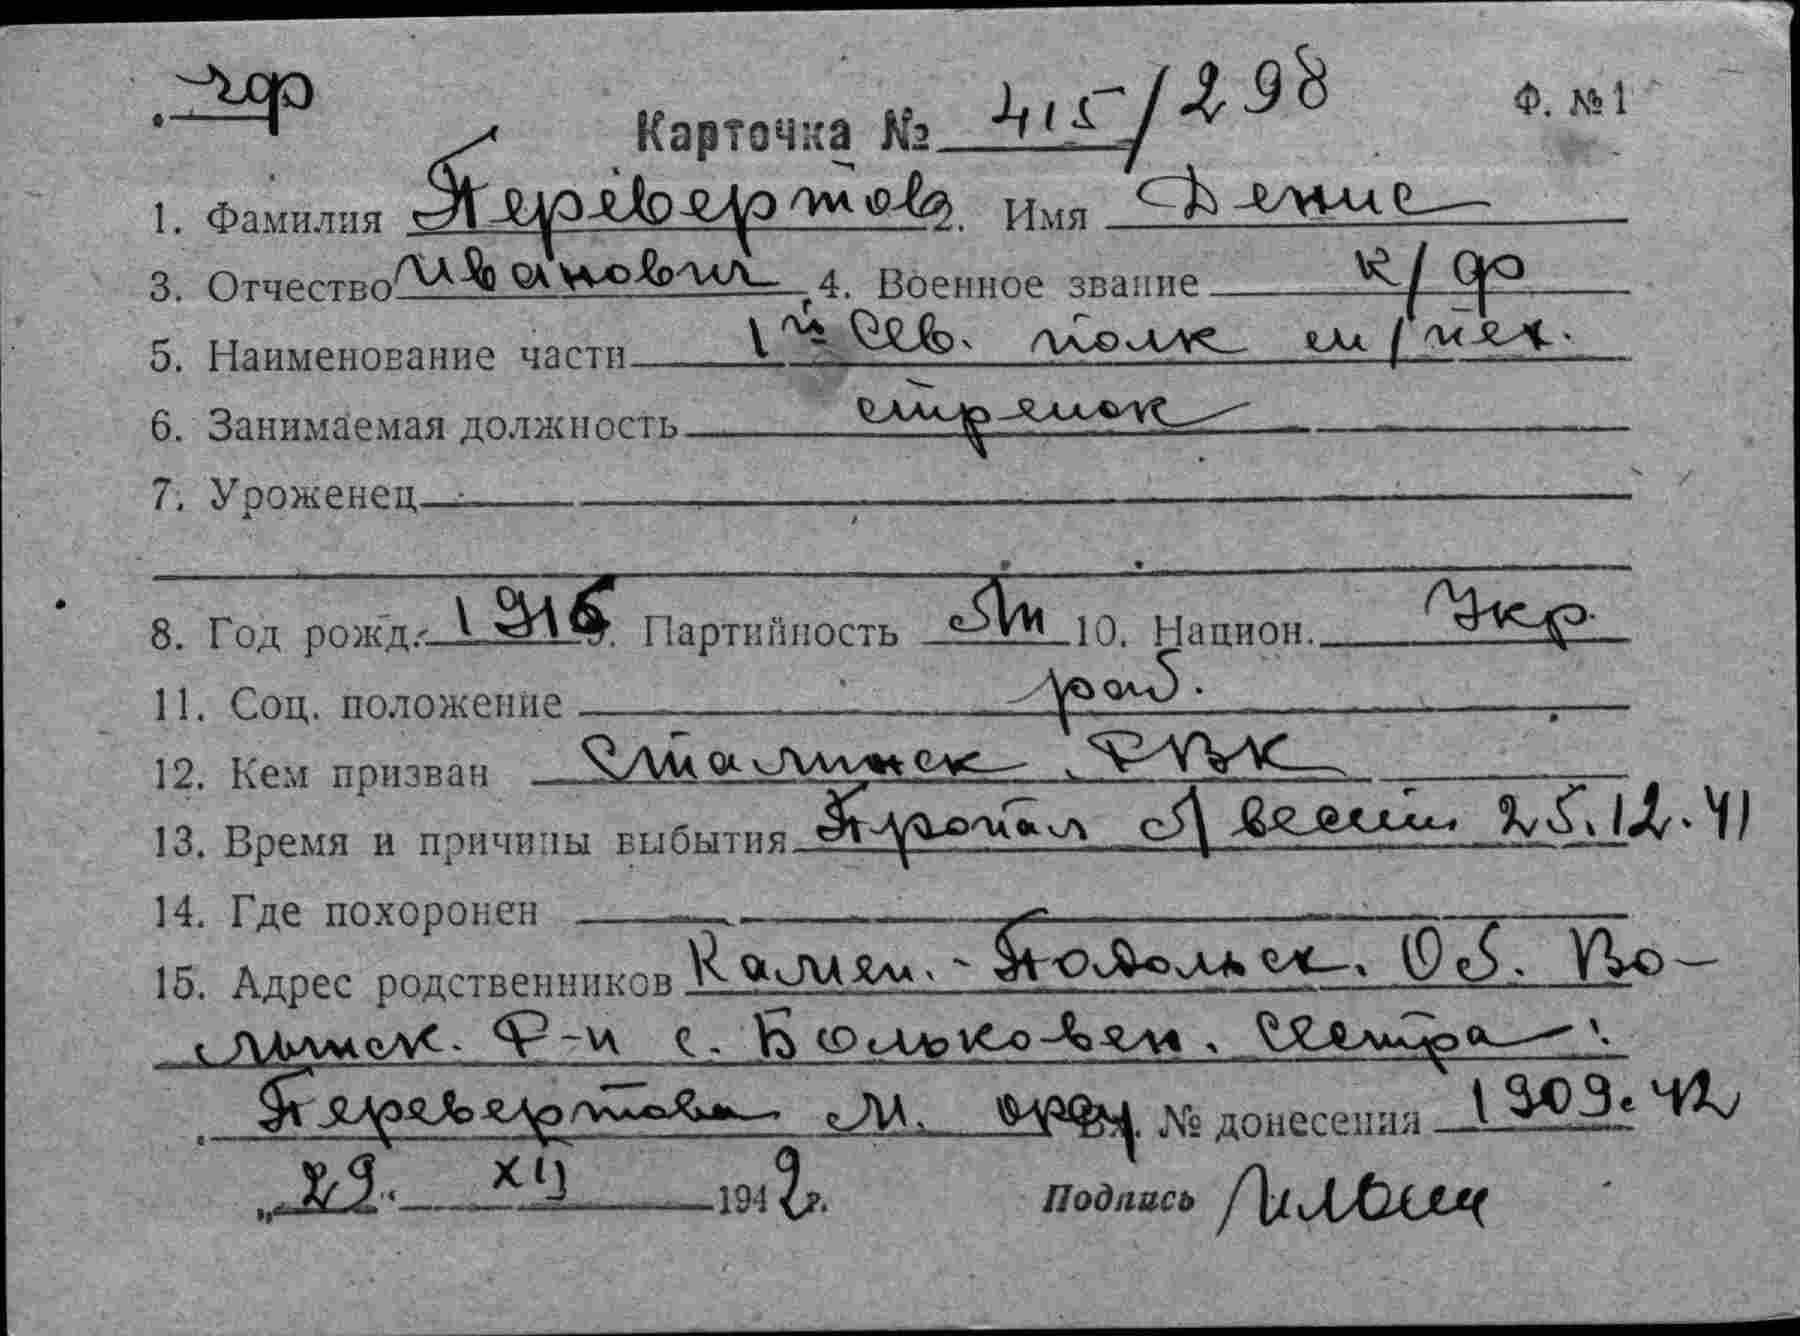 чф
Карточка № 415/298 Ф. №1
1. Фамилия Перевертов 2. Имя Денис
3. Отчество Иванович 4. Военное звание к/ф
5. Наименование части 1й Сев. полк м/пех.
6. Занимаемая должность стрелок
7. Уроженец
8. Год рожд. 1916 9. Партийность 10. Национ. Укр.
11. Соц. положение раб.
12. Кем призван Сталинск РВК
13. Время и причины выбытия Пропал Б вести 25.12.41
14. Где похоронен
15. Адрес родственников Камен.-Подольск. Об. Во-
лынск. Р-н с. Сестра:
Перевертова М. Вх. № донесения 1909. 42
„29“ XII 1942г. Подпись